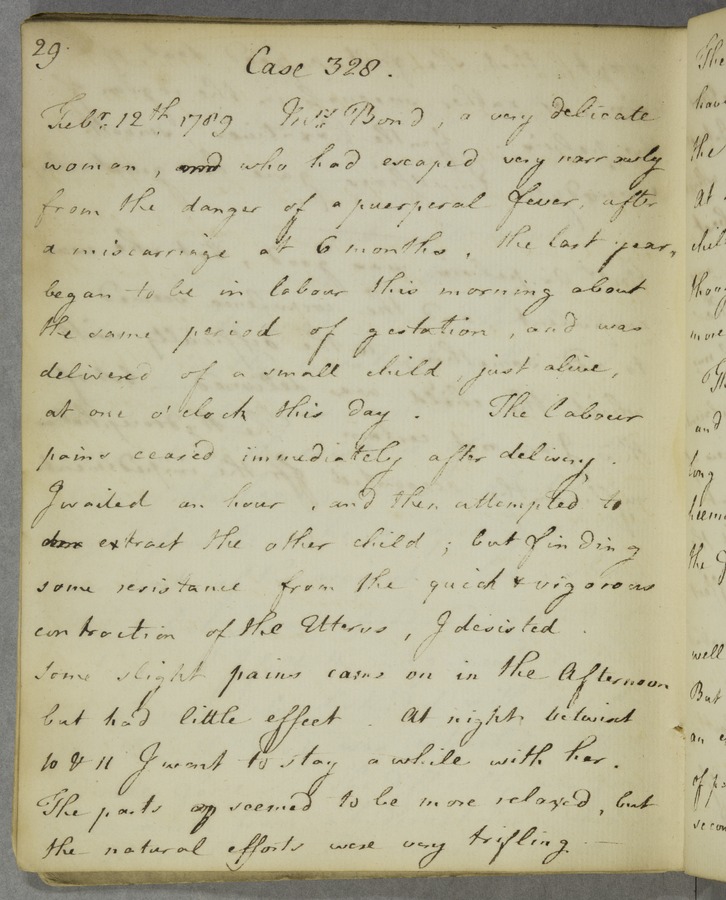 29.
Case 328.
Febr. 12th. 1789 Mrs. Bond, a very delicate
woman, and who had escaped very narrowly
from the danger of a puerperal fever, after
a miscarriage at 6 months, the last year,
began to be in labour this morning about
the same period of gestation, and was
delivered of a small child, just alive,
at one o'clock this day. The labour
pains ceased immediately after delivery.
I waited an hour, and then attempted to
extract the other child; but finding
some resistance from the quick & vigorous
contraction of the Uterus, I desisted.
Some slight pains came on in the Afternoon
but had little effect. At night betwixt
10 & 11 I went to stay awhile with her.
The parts seemed to be more relaxed, but
the natural efforts were very trifling. —
The
hav
the
At
chil
thou
more
Th
and
long
seem
the
well
But
an
of p
secon